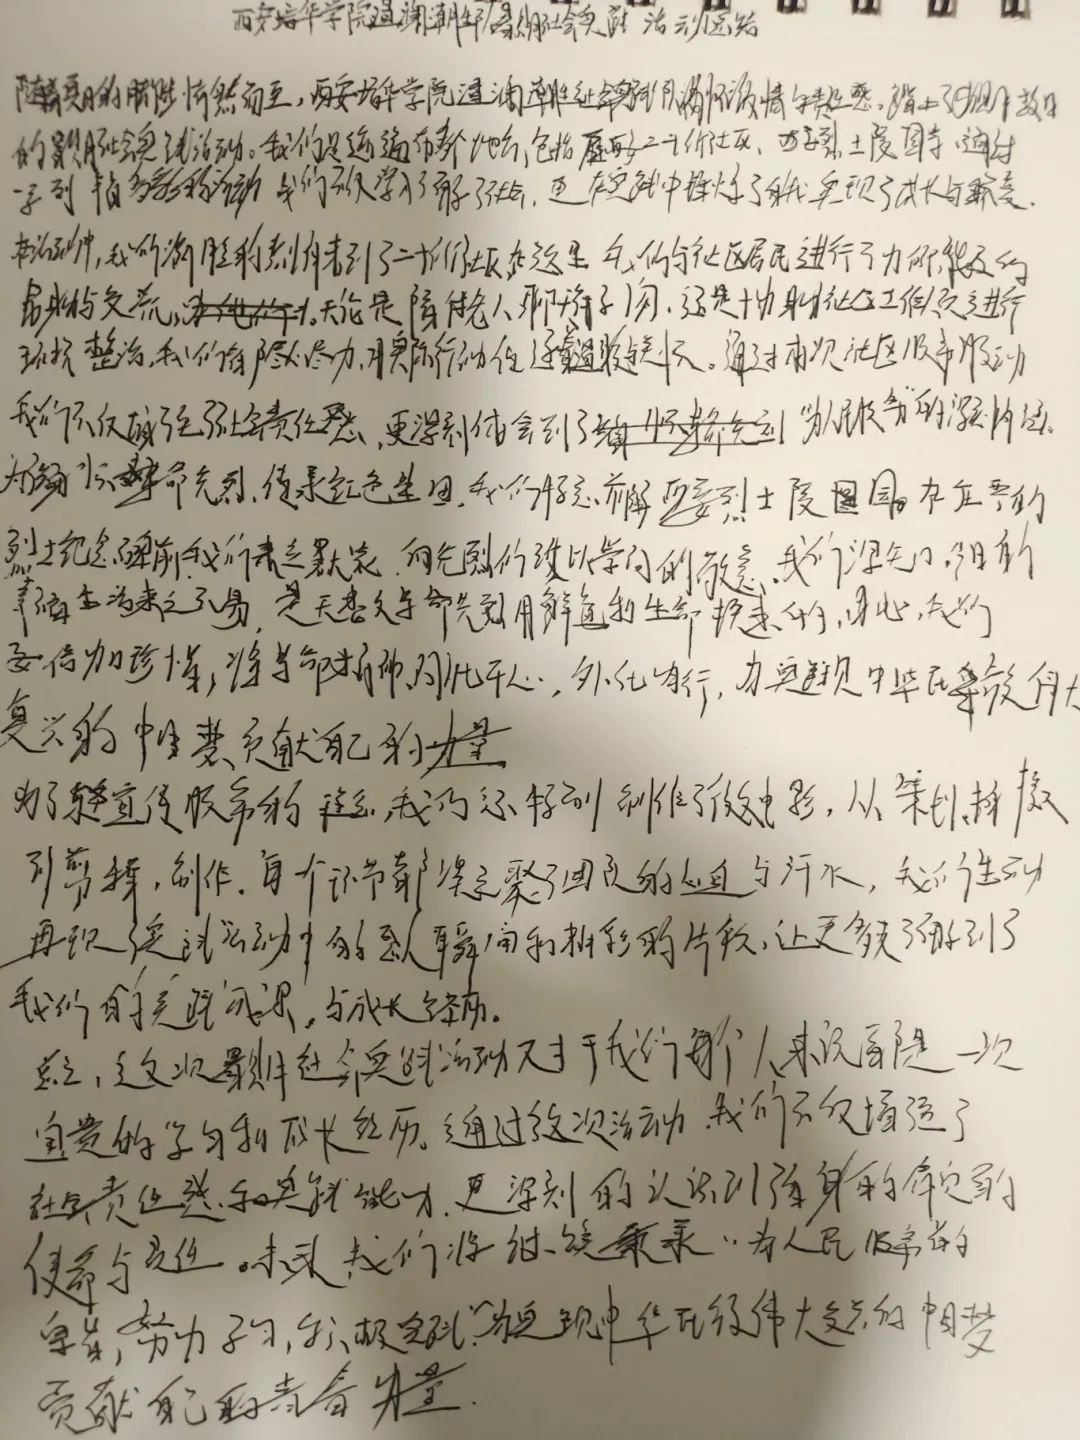 西安培华学院温澜潮生队暑期社会实践活动总结
随着夏日的 悄然而至,西安培华学院温澜潮生社会实践队满怀激情与责任感,踏上了 数日
的暑期社会实践活动。我们足迹遍布多个地点,包括 二十一街社区、西安烈士陵园等。通过
一系列 活动 我们不仅学习了解了社会,更在实践中 了自我 实现了成长与蜕变。
在活动中,我们满腔 来到了二十一街社区,在这里 我们与社区居民进行了力所能及的
帮助与交流, 无论是陪伴老人聊天 ,还是协助社区工作人员进行
环境整治,我们都尽心尽力,用实际行动 。通过本次社区服务活动
我们不仅增强了社会责任感,更深刻体会到了 “为人民服务”的深刻内涵。
为 革命先烈、传承红色基因,我们特意前往西安烈士陵园。在庄严的
烈士纪念碑前,我们肃立默哀,向先烈们致以崇高的敬意。我们深知,今日的
幸福生活来之不易,是无数革命先烈用鲜血和生命换来的,因此,我们
要倍加珍惜,将革命精神内化于心,外化于行,为实现中华民族伟大
复兴的中国梦贡献自己的力量
为了 宣传服务的理念,我们还特别制作了微电影,从策划、拍摄
到剪辑,制作,每个环节都凝聚了团队的心血与汗水,我们生动
再现了实践活动中的感人瞬间和精彩的片段,让更多 了解到了
我们的实践成果,与成长经历。
总之,这次暑期社会实践活动对于我们每个人来说都是一次
宝贵的学习和成长经历。通过这次活动,我们不仅增强了
社会责任感和实践能力,更深刻的认识到了自身的 的
使命与责任。未来,我们将继续秉承“为人民服务”的
宗旨,努力学习,积极实践,为实现中华民族伟大复兴的中国梦
贡献自己的青春力量.